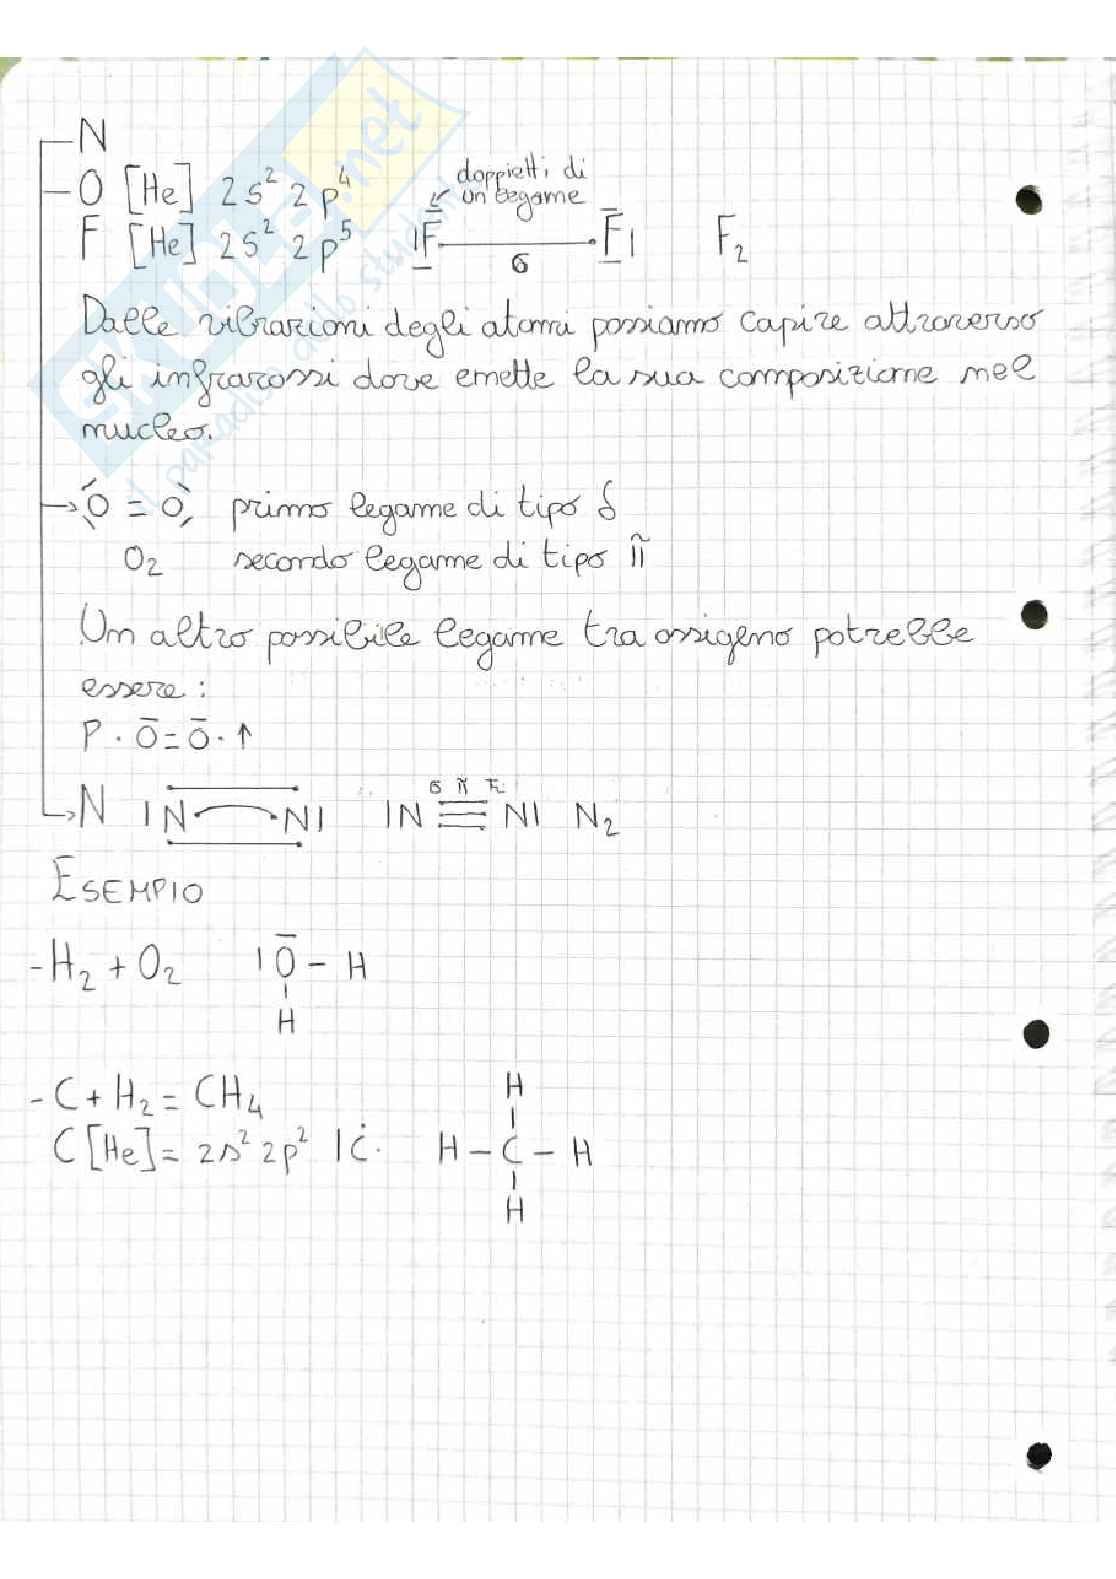 N
O [He] 2s² 2p⁴ doppietti di
un legame
F [He] 2s² 2p⁵ |F——F| F₂
σ
Dalle vibrazioni degli atomi possiamo capire attraverso
gli infrarossi dove emette la sua composizione nel
nucleo.
O = O primo legame di tipo δ
O₂ secondo legame di tipo π
Un altro possibile legame tra ossigeno potrebbe
essere:
P · O̅ = O̅ · ↑
σ π π
N |N N| |N≡N| N₂
ESEMPIO
- H₂ + O₂ |O̅ – H
|
H
H
- C + H₂ = CH₄ |
C [He] = 2s² 2p² |Ċ· H – C – H
|
H
SKUOLA.net
il paradiso dello studente